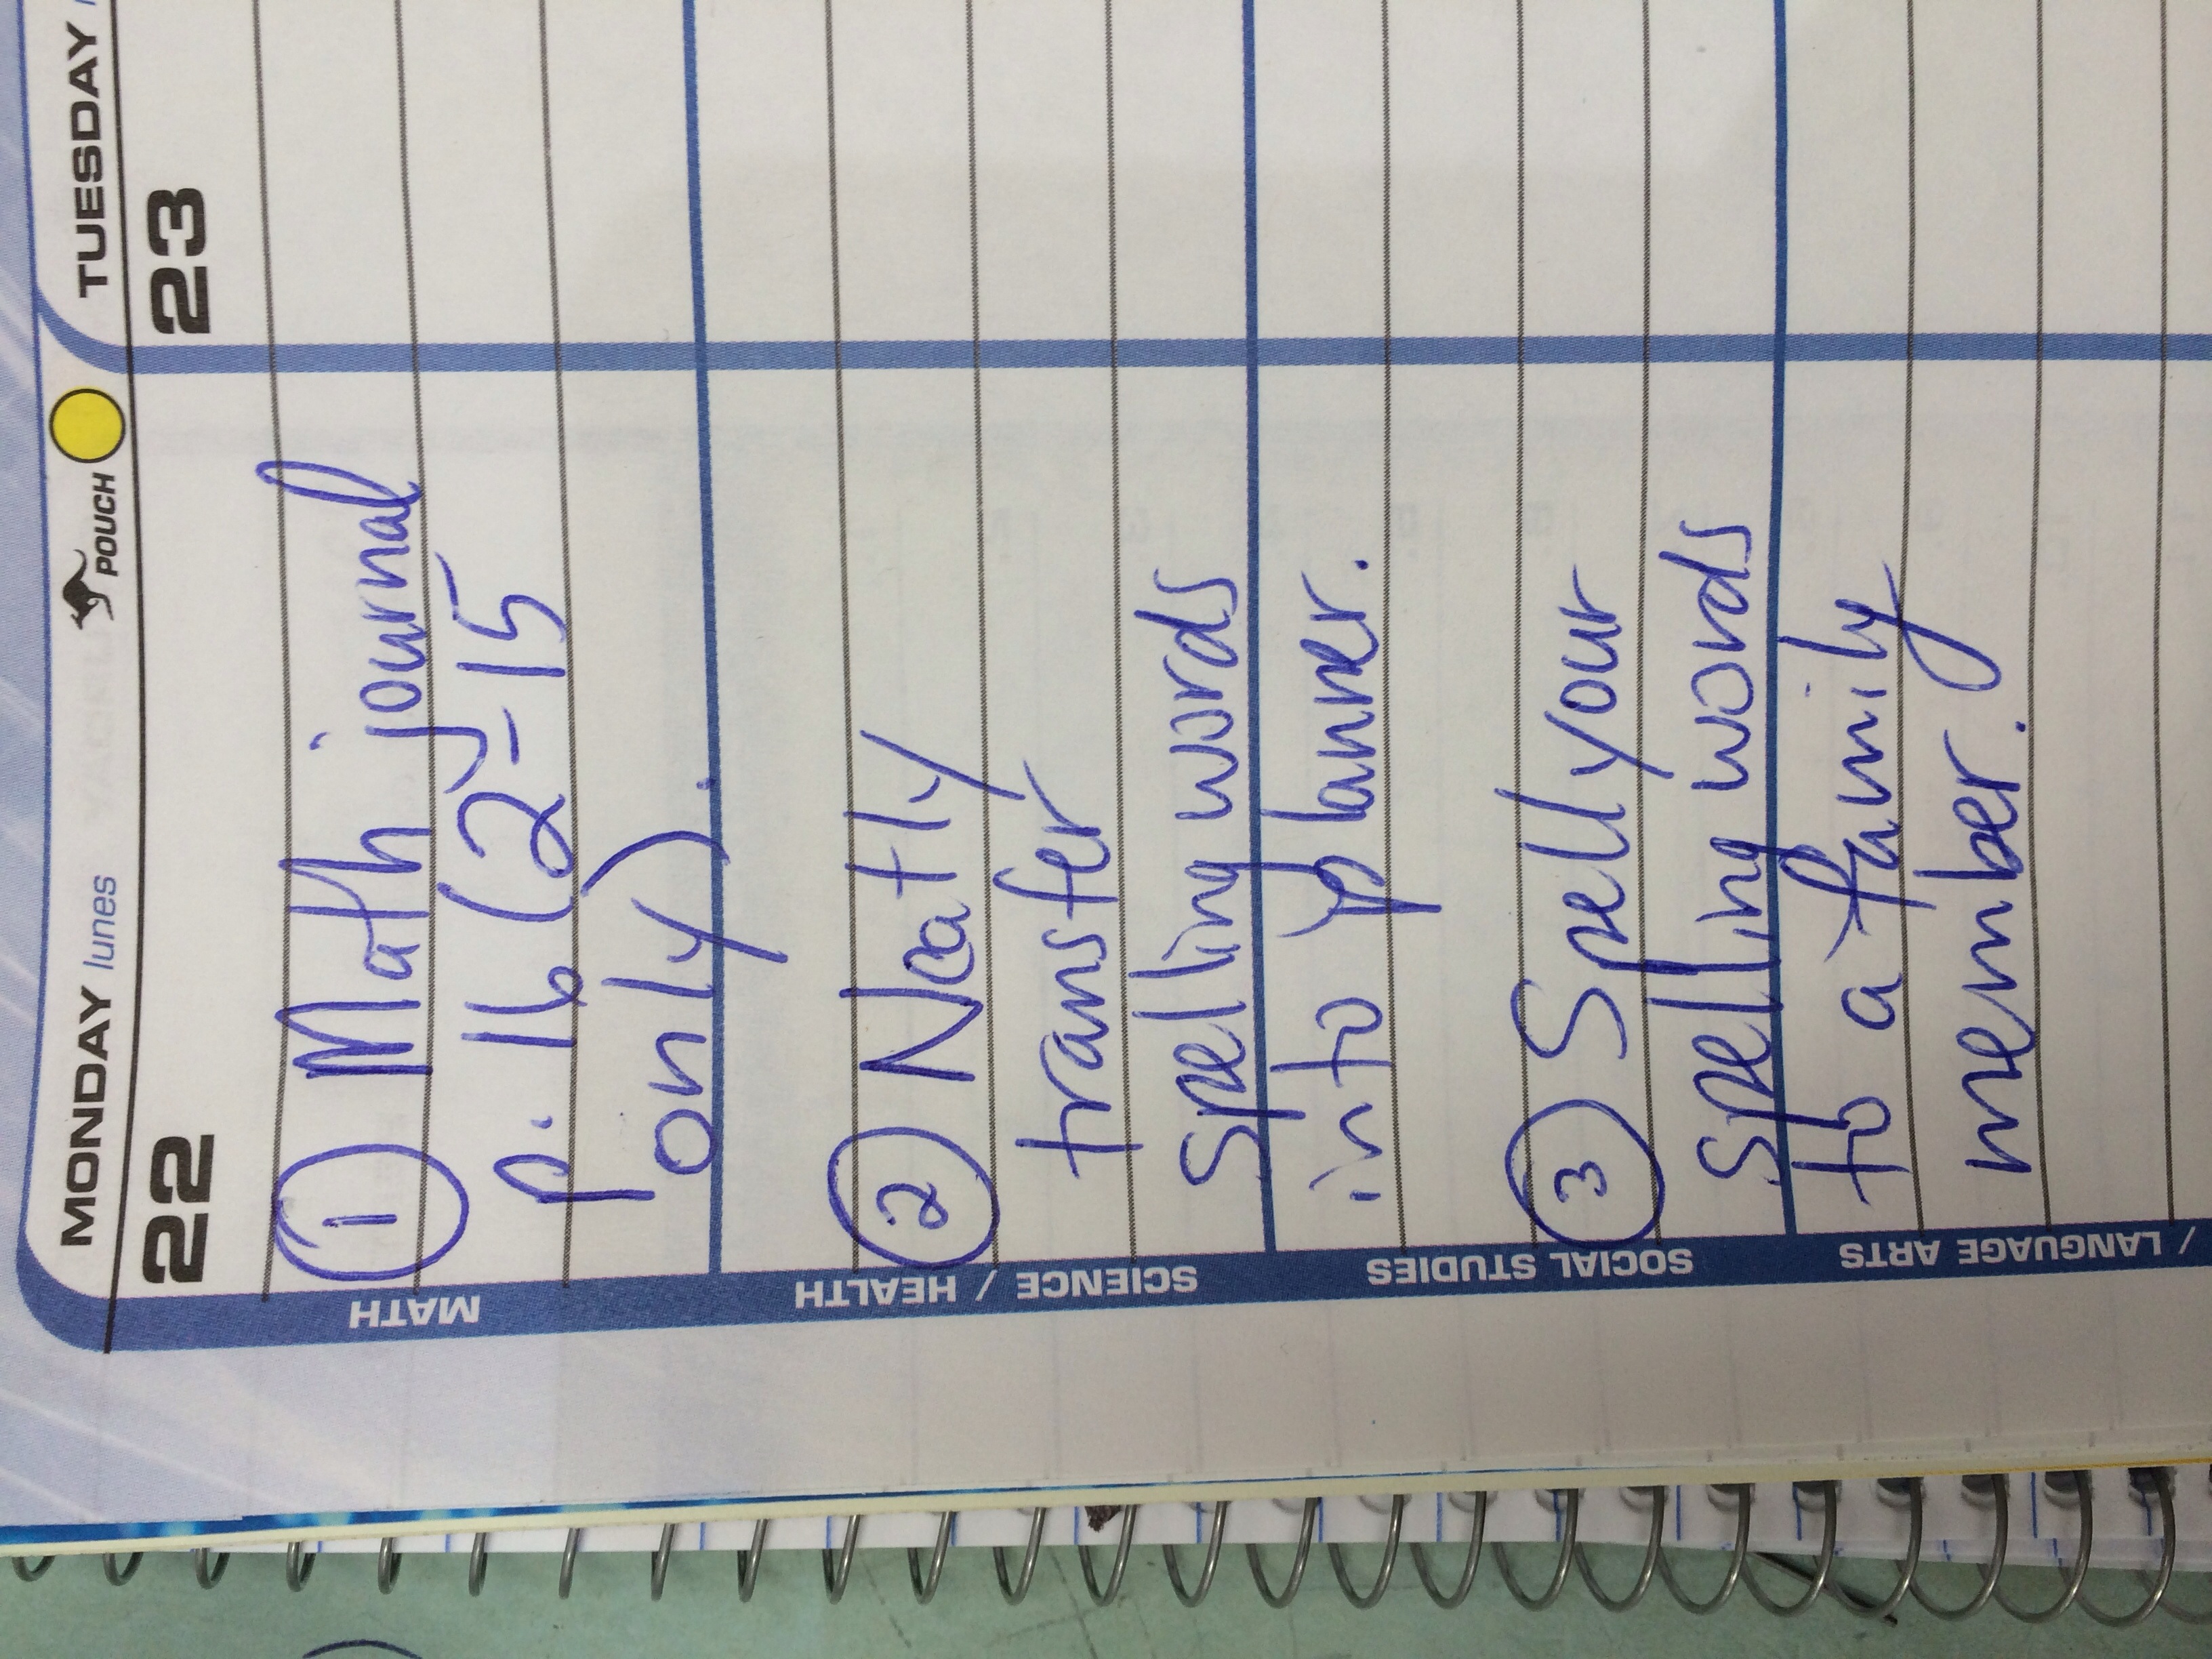 MONDAY lunes
POUCH
TUESDAY
22
23
MATH
① Math journal
p. 16 (2-15
only).
SCIENCE / HEALTH
② Neatly
transfer
spelling words
into planner.
SOCIAL STUDIES
③ Spell your
spelling words
to a family
member.
/ LANGUAGE ARTS